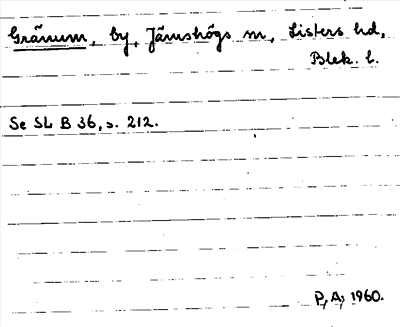 Gränum, by, Jämshögs sn, Listers hd,
Blek. l.
Se SL B 36, s. 212.
P, A, 1960.